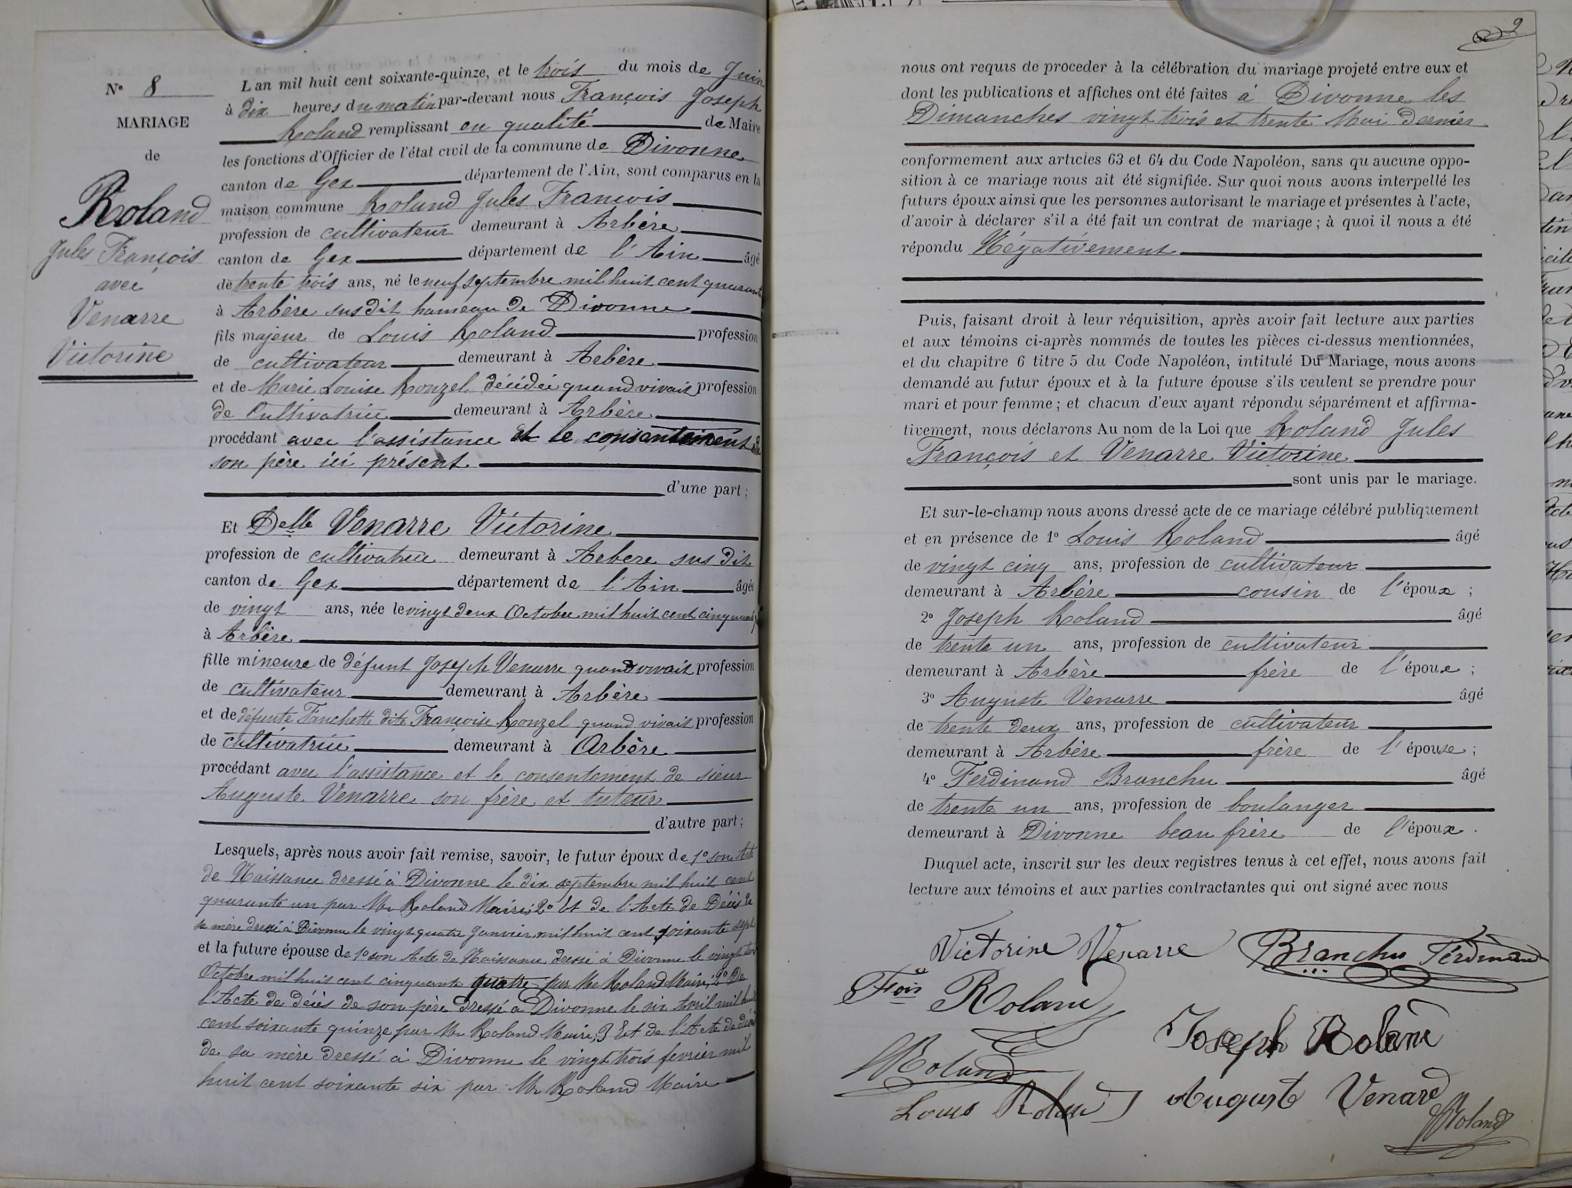 N° 8
MARIAGE
de
Roland
Jules François
avec
Venarre
Victorine
Lan mil huit cent soixante-quinze, et le trois du mois de Juin
à dix heures du matin par-devant nous François Joseph
Roland remplissant en qualité de Maire
les fonctions d'Officier de l'état civil de la commune de Divonne
canton de Gex département de l'Ain, sont comparus en la
maison commune Roland Jules François
profession de cultivateur demeurant à Arbère
canton de Gex département de l'Ain âgé
de trente trois ans, né le neuf septembre mil huit cent quarante
à Arbère susdit hameau de Divonne
fils majeur de Louis Roland profession
de cultivateur demeurant à Arbère
et de Marie Louise Rouzel décédée quand vivait profession
de Cultivatrice demeurant à Arbère
procédant avec l'assistance et le consentement de
son père ici présent
d'une part ;
Et Delle Venarre Victorine
profession de cultivatrice demeurant à Arbere sus dit
canton de Gex département de l'Ain âgée
de vingt ans, née le vingt deux Octobre mil huit cent cinquante
à Arbère
fille mineure de défunt Joseph Venarre quand vivait profession
de cultivateur demeurant à Arbère
et de défunte Fanchette dite Françoise Rouzel quand vivait profession
de cultivatrice demeurant à Arbère
procédant avec l'assistance et le consentement de sieur
Auguste Venarre son frère et tuteur
d'autre part ;
Lesquels, après nous avoir fait remise, savoir, le futur époux de 1° son Acte
de Naissance dressé à Divonne le dix septembre mil huit cent
quarante un par Mr Roland Maire; 2° Et de l'Acte de Décès de
sa mère dressé à Divonne le vingt quatre Janvier mil huit cent soixante sept
et la future épouse de 1° son Acte de Naissance dressé à Divonne le vingt trois
Octobre mil huit cent cinquante quatre par Mr Roland Maire; 2° De
l'Acte de décès de son père dressé à Divonne le six Avril mil huit
cent soixante quinze par Mr Roland Maire, 3 Et de l'Acte de décès
de sa mère dressé à Divonne le vingt trois fevrier mil
huit cent soixante six par Mr Roland Maire
2
nous ont requis de proceder à la célébration du mariage projeté entre eux et
dont les publications et affiches ont été faites à Divonne les
Dimanches vingt trois et trente Mai dernier
conformement aux articles 63 et 64 du Code Napoléon, sans qu aucune oppo-
sition à ce mariage nous ait été signifiée. Sur quoi nous avons interpellé les
futurs époux ainsi que les personnes autorisant le mariage et présentes à l'acte,
d'avoir à déclarer s'il a été fait un contrat de mariage ; à quoi il nous a été
répondu Négativement
Puis, faisant droit à leur réquisition, après avoir fait lecture aux parties
et aux témoins ci-après nommés de toutes les pièces ci-dessus mentionnées,
et du chapitre 6 titre 5 du Code Napoléon, intitulé Du Mariage, nous avons
demandé au futur époux et à la future épouse s'ils veulent se prendre pour
mari et pour femme ; et chacun d'eux ayant répondu séparément et affirma-
tivement, nous déclarons Au nom de la Loi que Roland Jules
François et Venarre Victorine
sont unis par le mariage.
Et sur-le-champ nous avons dressé acte de ce mariage célébré publiquement
et en présence de 1° Louis Roland âgé
de vingt cinq ans, profession de cultivateur
demeurant à Arbère cousin de l'époux ;
2° Joseph Roland âgé
de trente un ans, profession de cultivateur
demeurant à Arbère frère de l'époux ;
3° Auguste Venarre âgé
de trente deux ans, profession de cultivateur
demeurant à Arbère frère de l'épouse ;
4° Ferdinand Branchu âgé
de trente un ans, profession de boulanger
demeurant à Divonne beau frère de l'époux .
Duquel acte, inscrit sur les deux registres tenus à cet effet, nous avons fait
lecture aux témoins et aux parties contractantes qui ont signé avec nous
Victorine Venarre Branchu Ferdinand
Fois Roland
Joseph Roland
Roland
Louis Roland J Auguste Venard
Roland